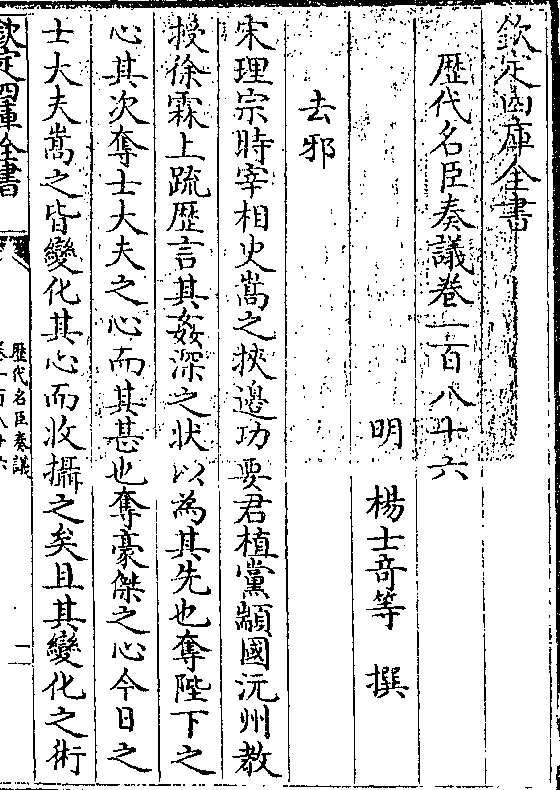 欽定四庫全書
歷代名臣奏議卷一百八十六
明 楊士竒等 撰
去邪
宋理宗時宰相史嵩之挾邊功要君植黨顓國沅州教
授徐霖上疏歴言其姦深之状以為其先也奪陛下之
心其次奪士大夫之心而其甚也奪豪傑之心今日之
士大夫嵩之皆變化其心而收攝之矣且其變化之術
欽定四庫全書
歷代名臣奏議
卷一百八十六
一